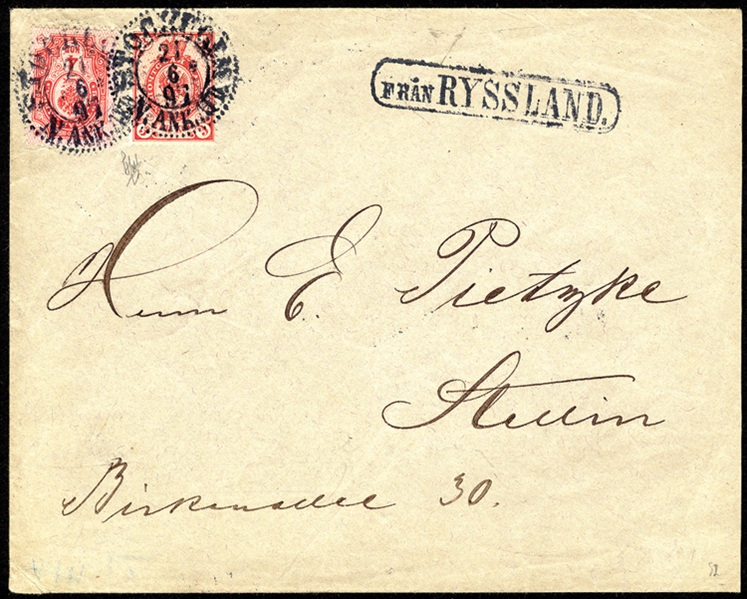 21
6
95
V. ANK.
FRÅN RYSSLAND.
Herrn E. Pietzke
Stettin
Birkenallee 30.